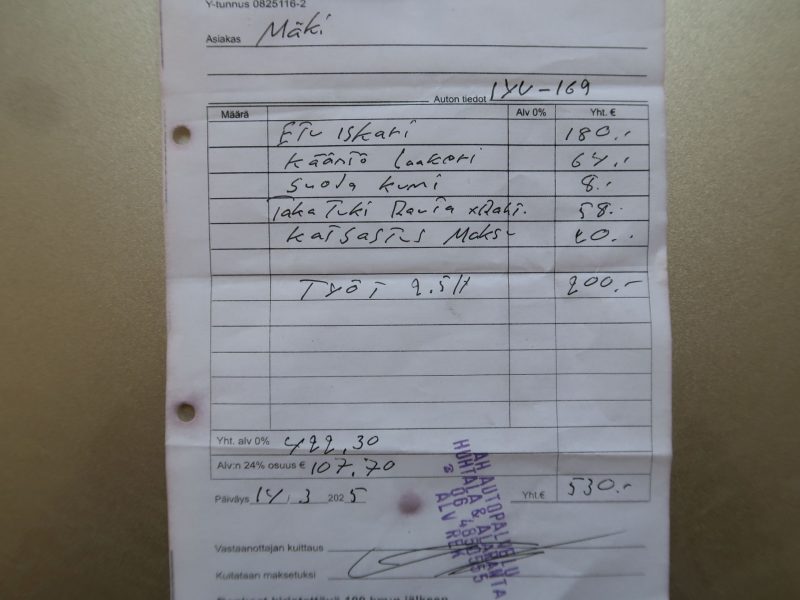 Y-tunnus 0825116-2
Asiakas Mäki
Auton tiedot IYU-169
Määrä Alv 0% Yht. €
ETU ISKARI 180.-
Kääntö Laakeri 64.-
Suola kumi 8.-
Taka Tuki Rauta 58.-
KATSASTUS Maksu 20.-
TYÖT 2.5H 200.-
Yht. alv 0% 422,30
Alv:n 24% osuus € 107,70
Päiväys 14.3 2025 Yht.€ 530.-
AH AUTOPALVELU
HUHTALA & ALARANTA
ALV REK
Vastaanottajan kuittaus
Kuitataan maksetuksi